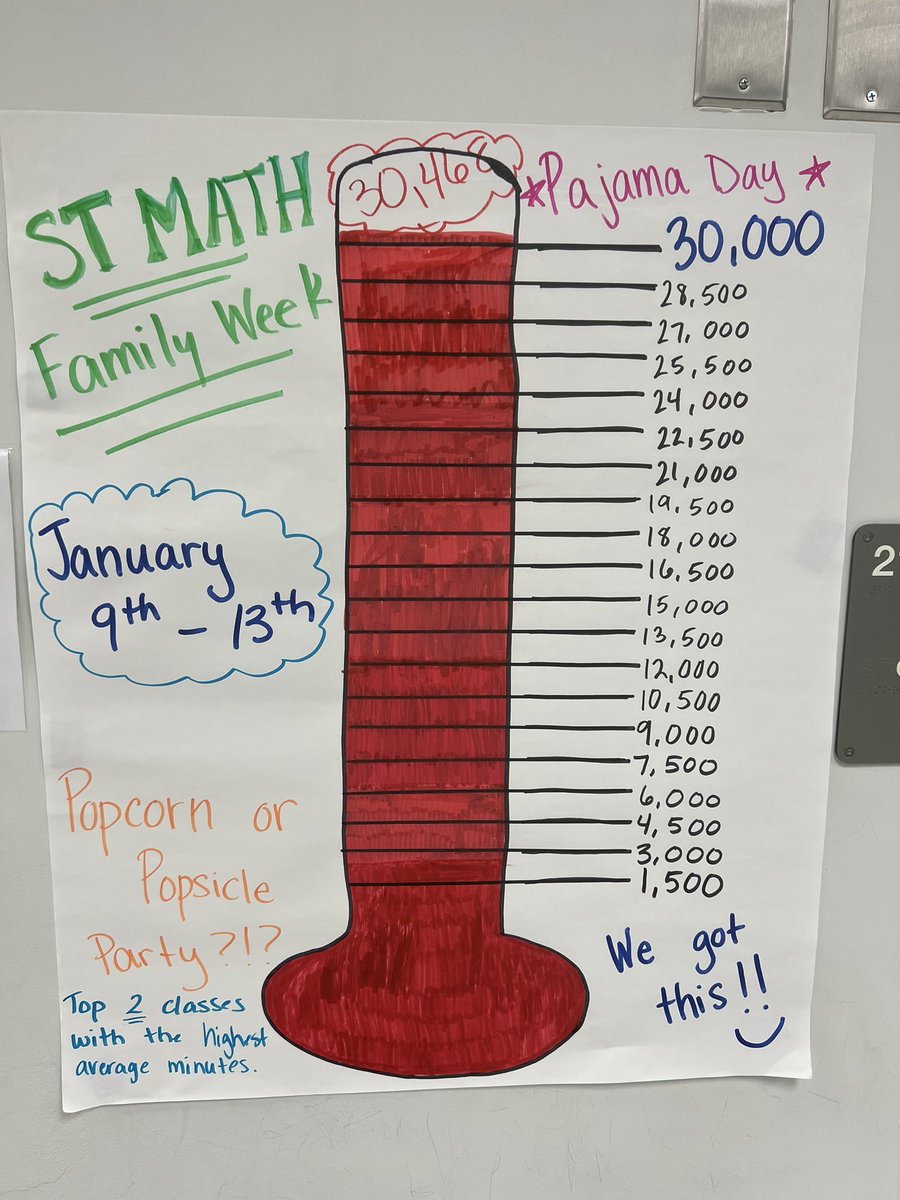 ST MATH
Family Week
January
9th - 13th
Popcorn or
Popsicle
Party?!?
Top 2 classes
with the highest
average minutes.
30,468
*Pajama Day *
30,000
28,500
27,000
25,500
24,000
22,500
21,000
19,500
18,000
16,500
15,000
13,500
12,000
10,500
9,000
7,500
6,000
4,500
3,000
1,500
We got
this!!